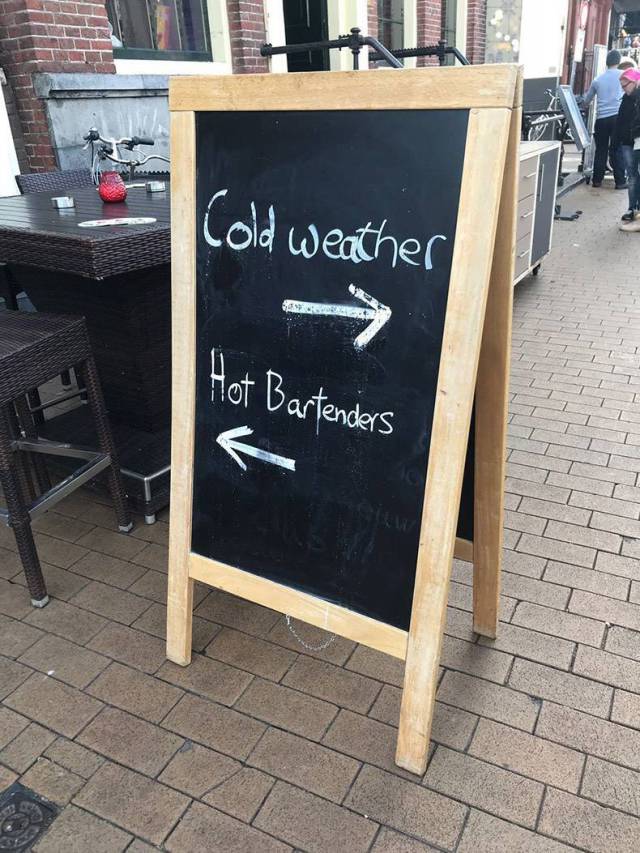 Cold weather
→
Hot Bartenders
←